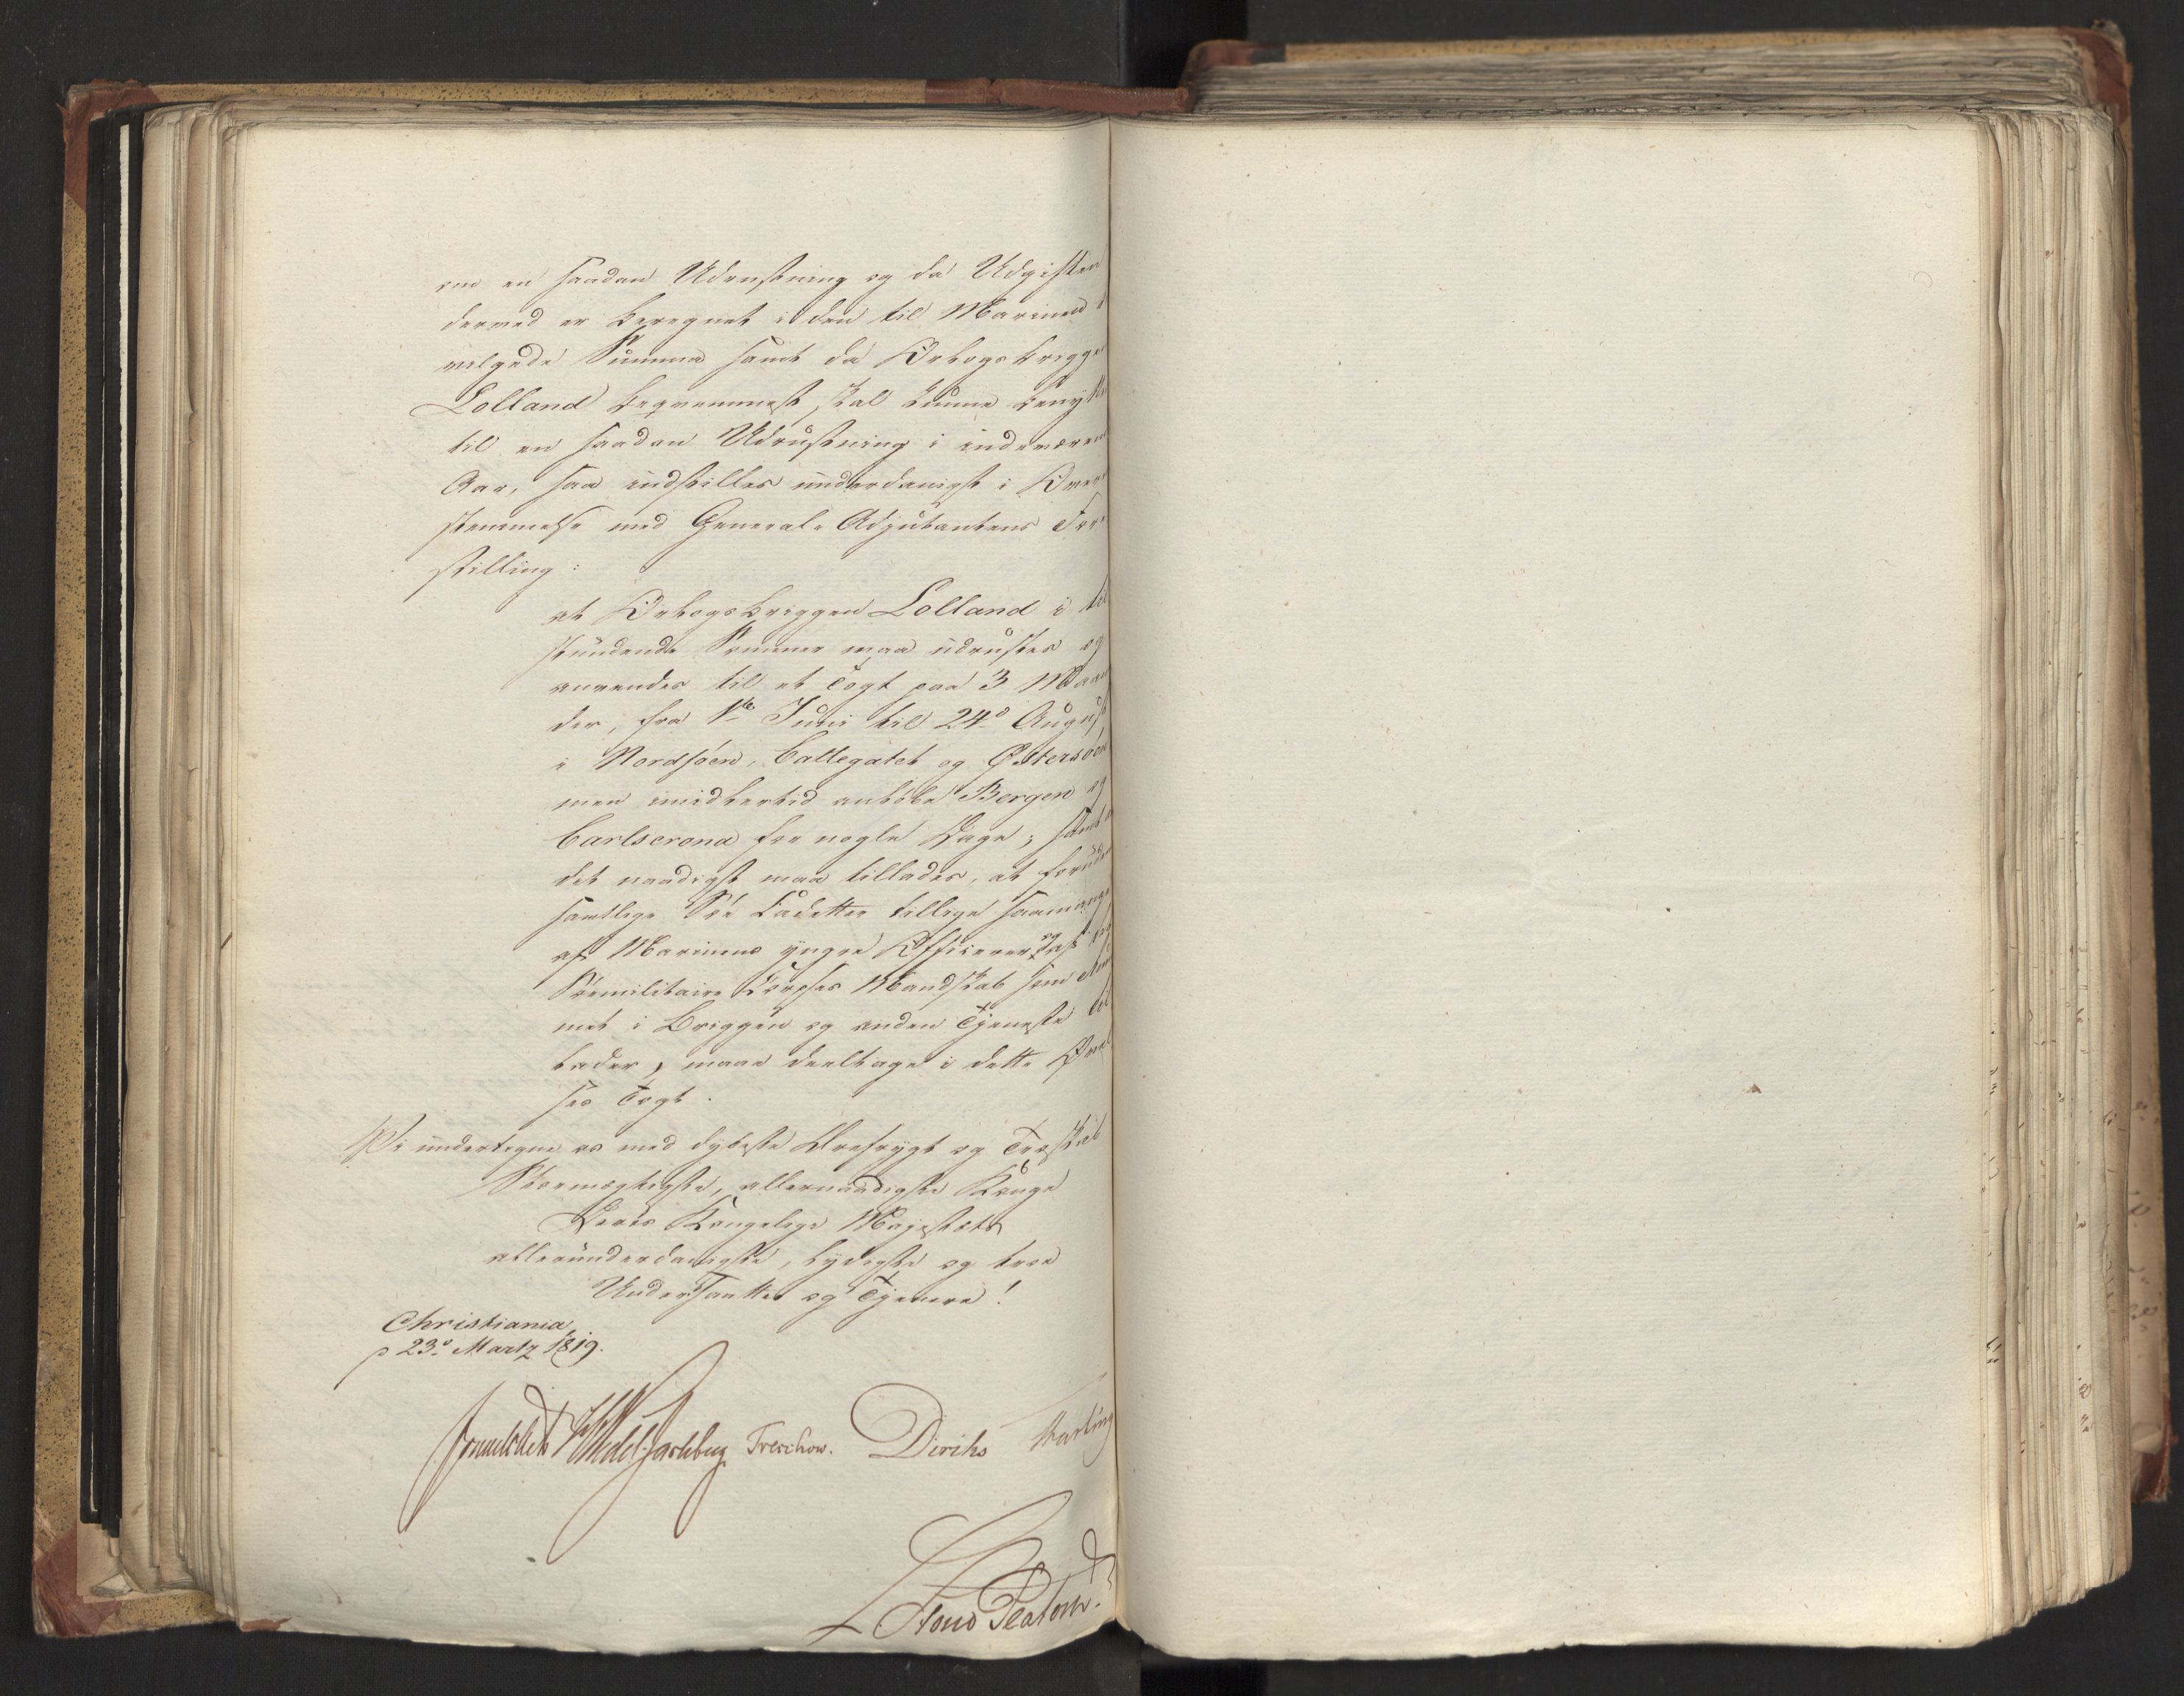 om en saadan Udrustning og da Udgiften
dermed er beregnet i den til Marinen
vilgede Summa samt da Orlogsbrigge
Lolland beqvemmest skal kunne beny
til en saadan Udrustning i indeværen
Aar, saa indstilles underdanigst i Over
stemmelse med General-Adjutantens Fore
stilling:
at Orlogsbriggen Lolland i til
stundende Sommer maa udrustes og
anvendes til et Togt paa 3 Maane
der, fra 1te Juni til 24de August
i Nordsøen, Cattegatet og Østersøen
men imidlertid anløbe Bergen og
Carlscrona for nogle Dage; samt
det naadigst maa tillades, at foruden
samtlige Søe Cadetter tillige saamange
af Marinens yngre Officerer og af
Sømilitaire Corpses Mandskab som
met i Briggen og anden Tjeneste til
lader, maae deeltage i dette Øvel
ses Togt.
Vi undertegne os med dybeste Ærefrygt og Troskab
Stormægtigste, allernaadigste Konge
Deres Kongelige Majestæts
allerunderdanigste, lydigste og troe
Undersaatter og Tjenere!
Christiania
p 23de Martz 1819.
Sommerhielm Wedel Jarlsberg Treschow. Diriks Fasting
Hono Platou.